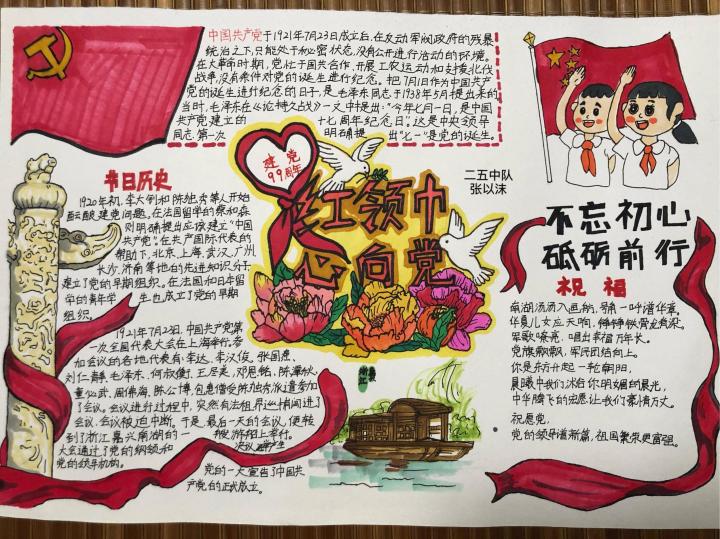 中国共产党于1921年7月23日成立后,在反动军阀政府的残暴
统治之下,只能处于秘密状态,没有公开进行活动的环境。
在大革命时期,党忙于国共合作、开展工农运动和支援北伐
战争,没有条件对党的诞生进行纪念。把7月1日作为中国共
产党的诞生进行纪念的日子,是毛泽东同志于1938年5月提出来的。
当时,毛泽东在《论持久战》一文中提出:"今年七月一日,是中国
共产党建立的十七周年纪念日"。这是中央领导
同志第一次明确提出"七一"是党的诞生。
建党
99周年
红领巾
心向党
二五中队
张以沫
节日历史
1920年初,李大钊和陈独秀等人开始
酝酿建党问题。在法国留学的蔡和森
则明确提出应该建立"中国
共产党"。在共产国际代表的
帮助下,北京、上海、武汉、广州
长沙、济南等地的先进知识分子
建立了党的早期组织。在法国和日本留
学的青年学生也成立了党的早期
组织。
1921年7月23日,中国共产党第
一次全国代表大会在上海举行。参
加会议的各地代表有:李达、李汉俊、张国焘、
刘仁静、毛泽东、何叔衡、王尽美、邓恩铭、陈潭秋、
董必武、周佛海、陈公博、包惠僧受陈独秀派遣参加
了会议。会议进行过程中,突然有法租界巡捕闯进了
会议,会议被迫中断。于是,最后一天的会议,便转
到了浙江嘉兴南湖的一
大会通过了党的纲领和
党的领导机构。
党的一大宣告了中国共
产党的正式成立。
浙江
嘉兴
不忘初心
砥砺前行
祝福
南湖汤汤入画舫,
华夏儿女应天响,
军歌嘹亮,唱出幸福万年长。
党旗飘飘,军民团结向上。
你是东方升起一轮朝阳,
晨曦中我们沐浴你明媚的晨光,
中华腾飞的宏愿让我们豪情万丈。
祝愿党,
党的领导谱新篇,祖国繁荣更富强。